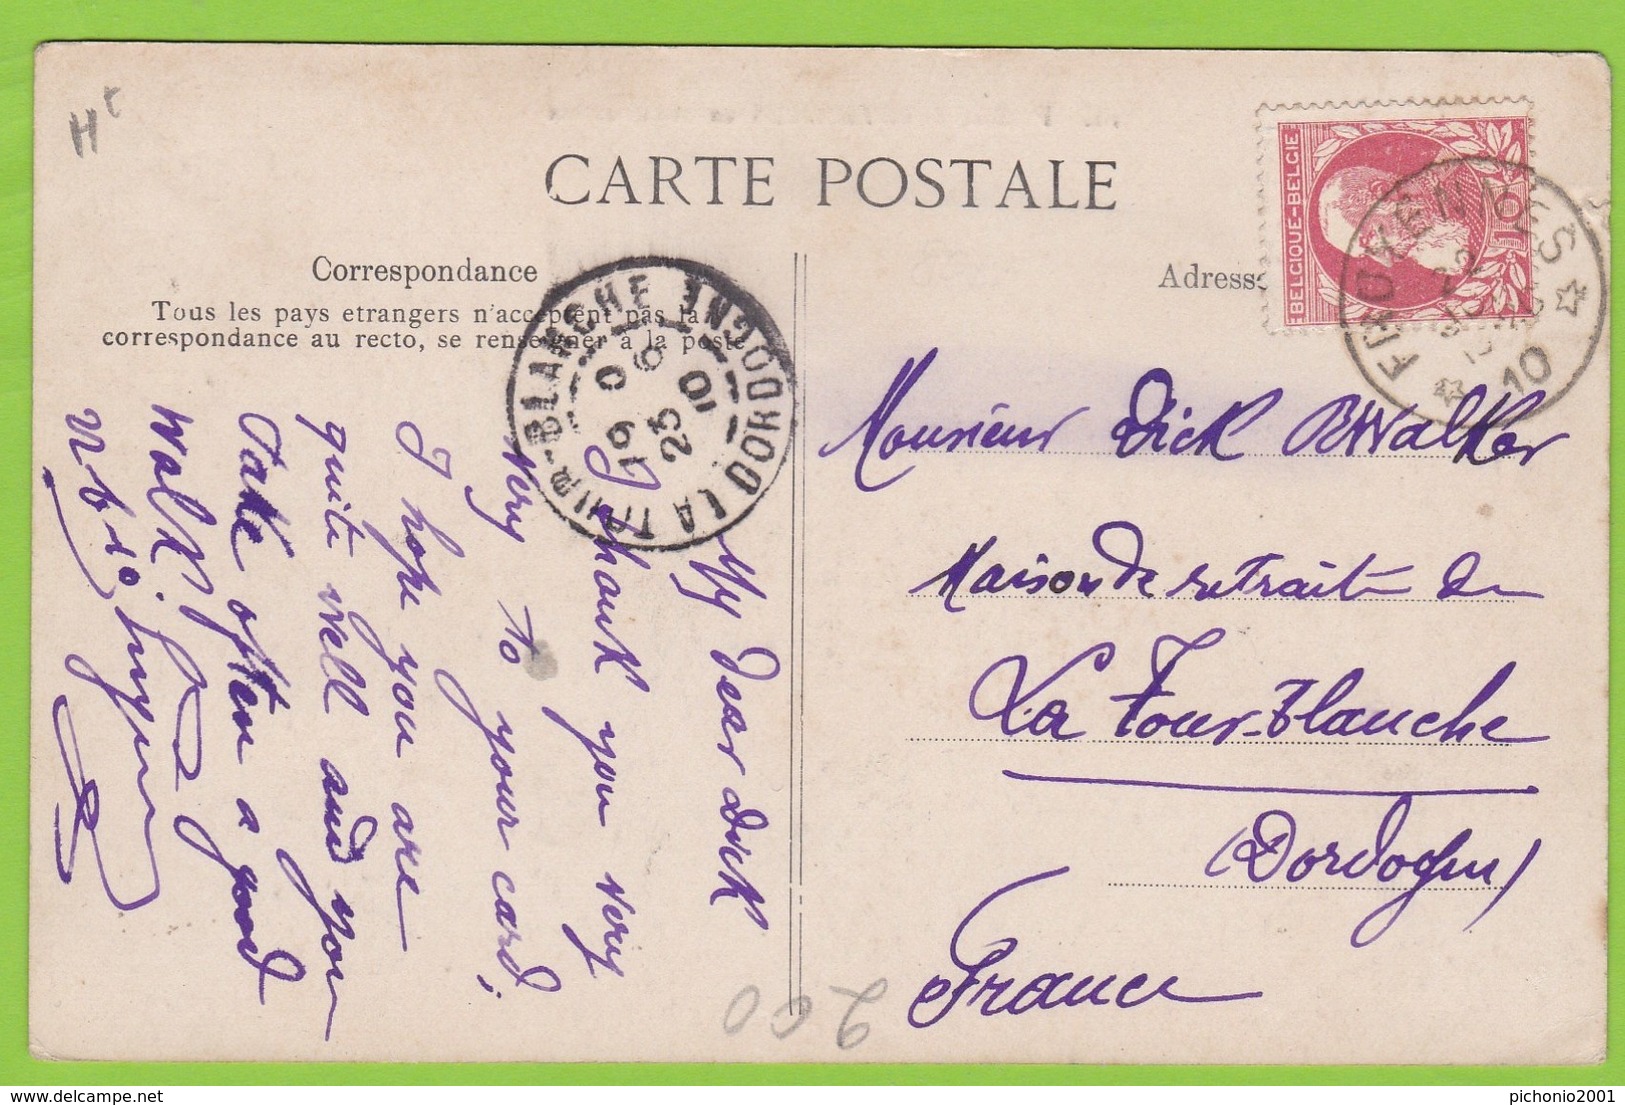 Ht
CARTE POSTALE
Correspondance
Tous les pays etrangers n'acceptent pas la
correspondance au recto, se renseigner à la poste
Adresse
BELGIQUE-BELGIE
10
10
LA TOUR-BLANCHE DORDOGNE
19 0
25 6
10
My dear Dick
I thank you very
very to your card,
I hope you are
quite well and you
Take often a good
Walk
Monsieur Dick Walker
Maison de retraite de
La Tour-Blanche
(Dordogne)
France
200
pichonio2001